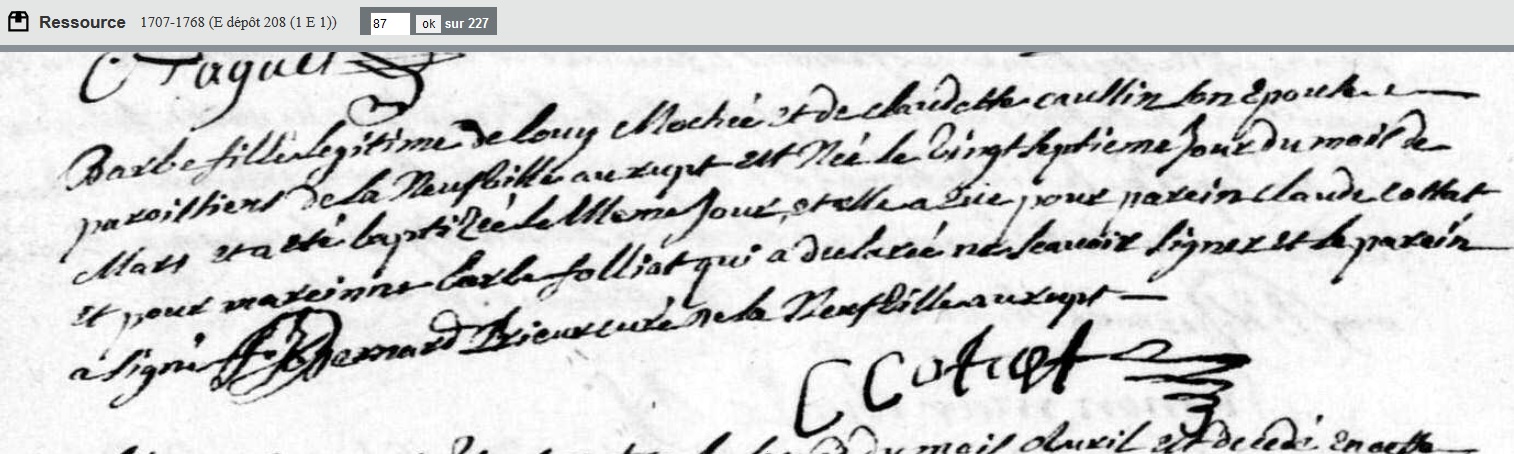 Ressource 1707-1768 (E dépôt 208 (1 E 1)) 87 ok sur 227
Barbe fille legitime de Louy Mochée et de claudette caullin son Epouse
paroissiens de la Neufville au rupt est Née le vingt septieme Jour du mois de
Mars et a eté baptizée le Meme Jour, et elle a eue pour parein claude collot
et pour mareinne barbe folliot qui a declarée ne scauoir signer et le parein
a signé Bernard Prieur curé de la Neufville au rupt
C Cotot
du mois d'avril est decedé En cette